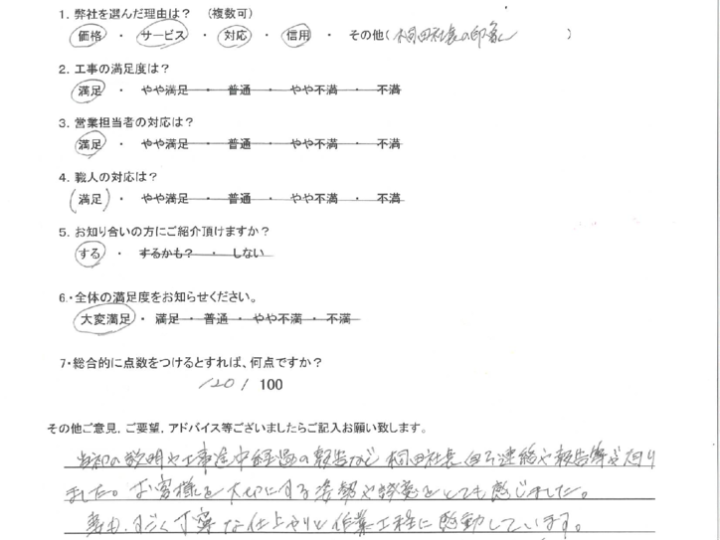 1. 弊社を選んだ理由は? (複数可)
価格 ・ サービス ・ 対応 ・ 信用 ・ その他( 桐田社長の印象 )
2. 工事の満足度は?
満足 ・ やや満足 ・ 普通 ・ やや不満 ・ 不満
3. 営業担当者の対応は?
満足 ・ やや満足 ・ 普通 ・ やや不満 ・ 不満
4. 職人の対応は?
満足 ・ やや満足 ・ 普通 ・ やや不満 ・ 不満
5. お知り合いの方にご紹介頂けますか?
する ・ するかも? ・ しない
6.・全体の満足度をお知らせください。
大変満足 ・ 満足 ・ 普通 ・ やや不満 ・ 不満
7・総合的に点数をつけるとすれば、何点ですか?
120 / 100
その他ご意見，ご要望，アドバイス等ございましたらご記入お願い致します。
当初の説明や工事途中経過の報告など 桐田社長自ら連絡や報告等を
ました。お客様を大切にする姿勢や をとても感じました。
すごく丁寧な仕上がりと作業工程に感動しています。